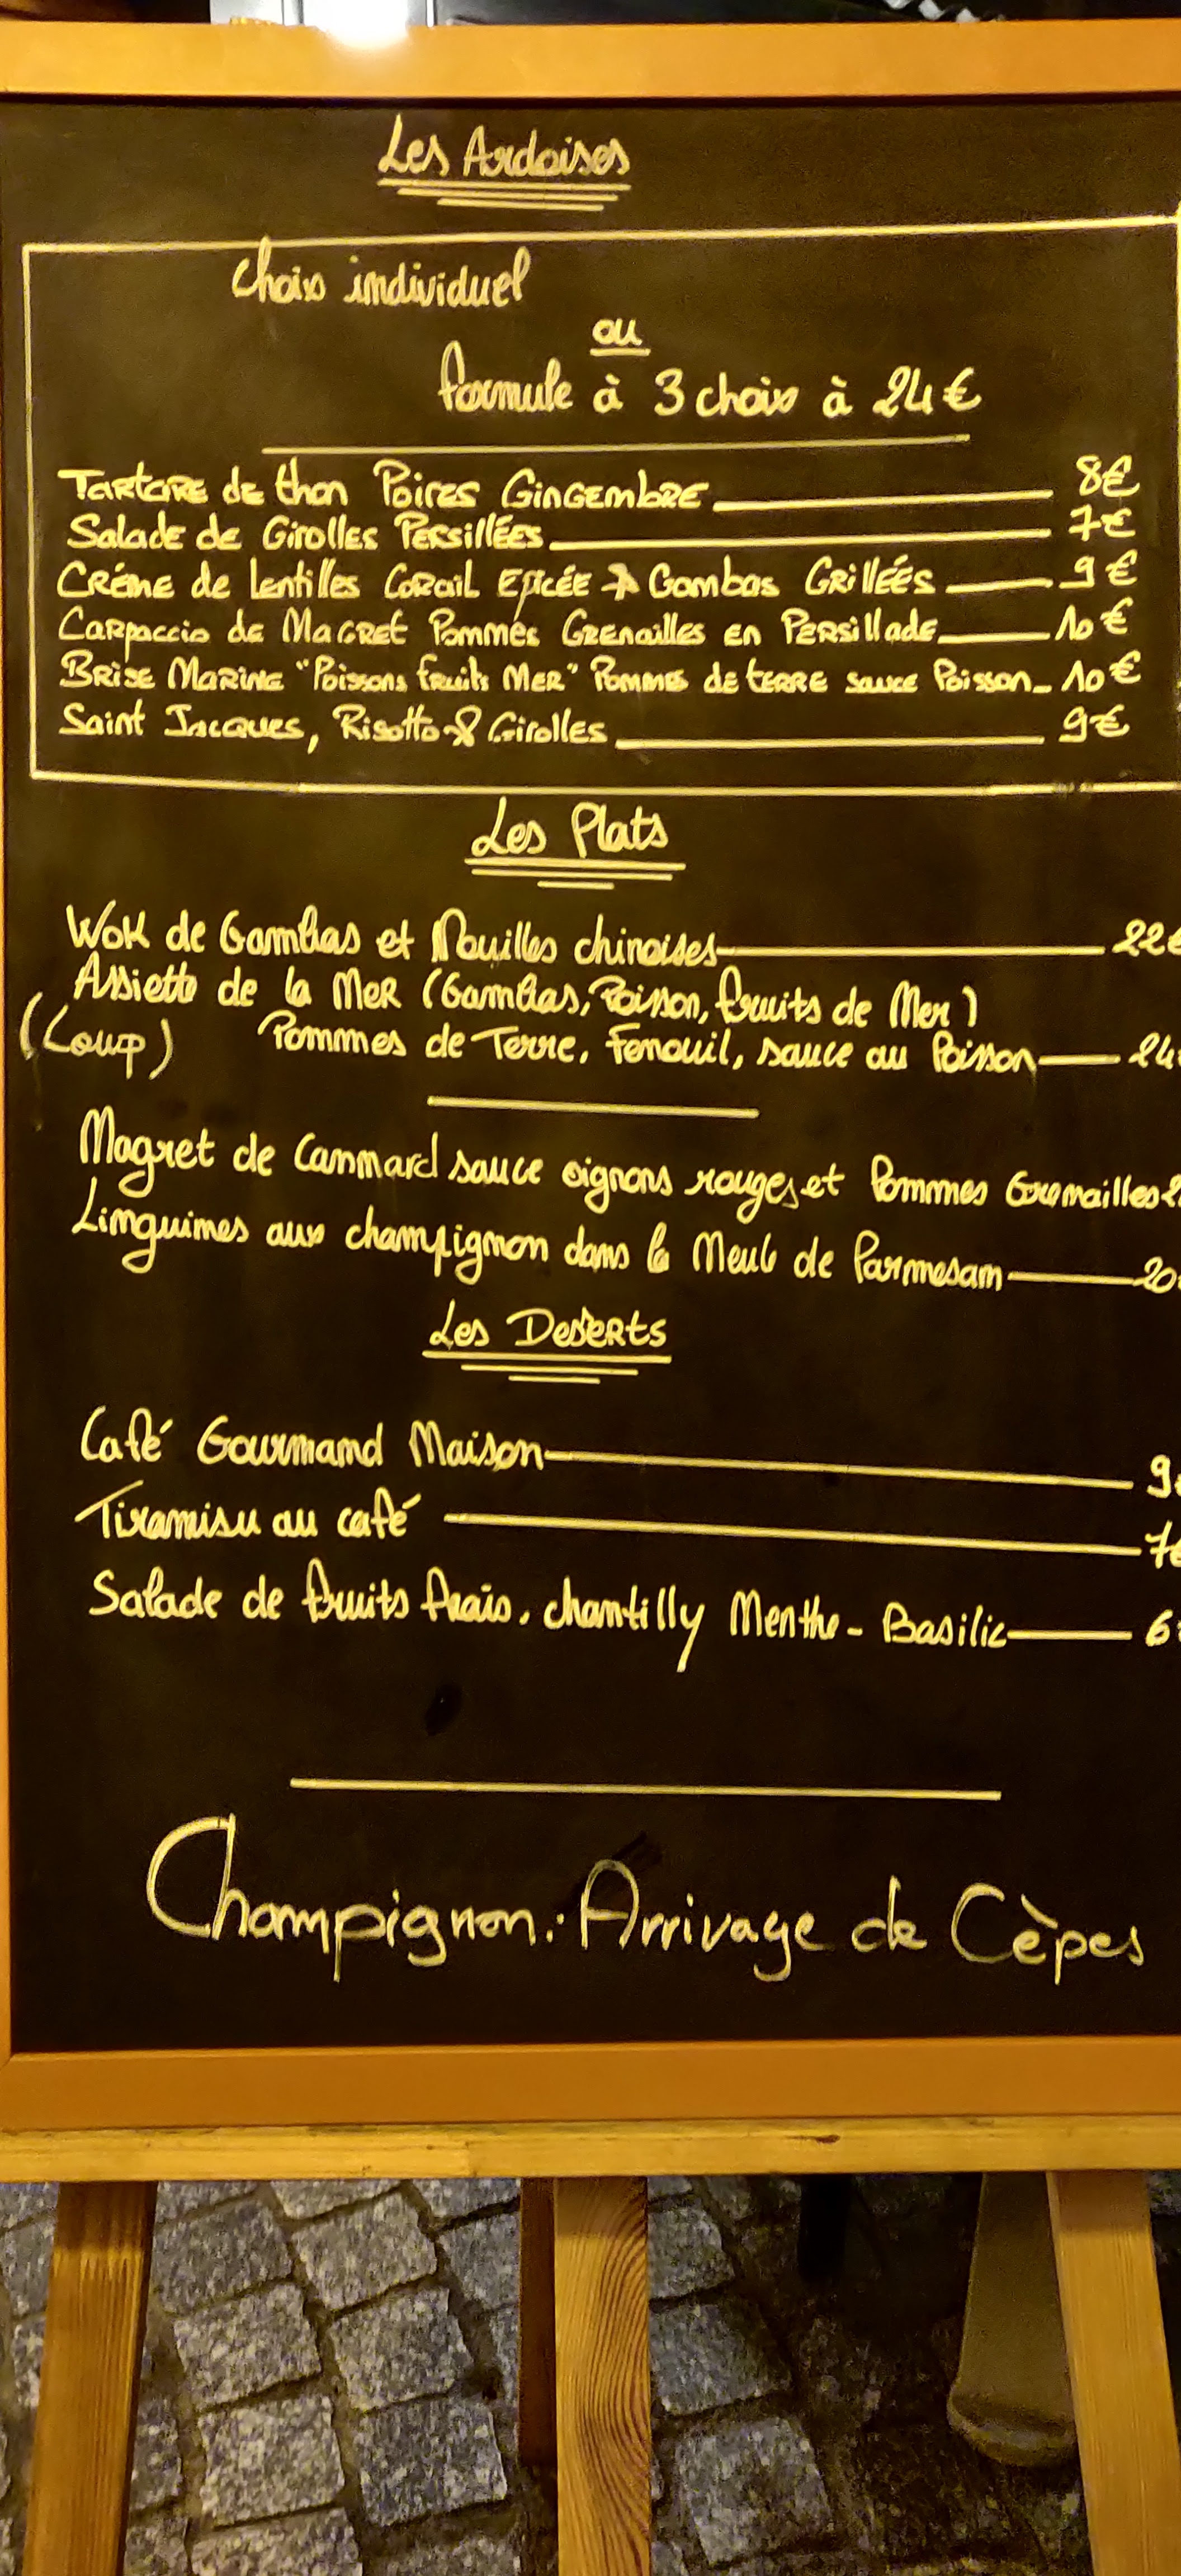 Les Ardoises
choix individuel
ou
formule à 3 choix à 24€
Tartare de thon Poires Gingembre 8€
Salade de Girolles Persillées 7€
Crème de Lentilles Corail Epicée & Gambas Grillées 9€
Carpaccio de Magret Pommes Grenailles en Persillade 10€
Brise Marine "Poissons fruits Mer" Pommes de terre sauce Poisson 10€
Saint Jacques, Risotto & Girolles 9€
Les Plats
Wok de Gambas et Nouilles chinoises 22€
Assiette de la Mer (Gambas, Poisson, fruits de Mer)
(Loup) Pommes de Terre, Fenouil, sauce au Poisson 24
Magret de Cannard sauce oignons rouges et Pommes Grenailles
Linguines aux champignon dans la Meule de Parmesan 20
Les Desserts
Café Gourmand Maison 9
Tiramisu au café 7€
Salade de fruits frais, chantilly Menthe-Basilic 6
Champignon: Arrivage de Cèpes